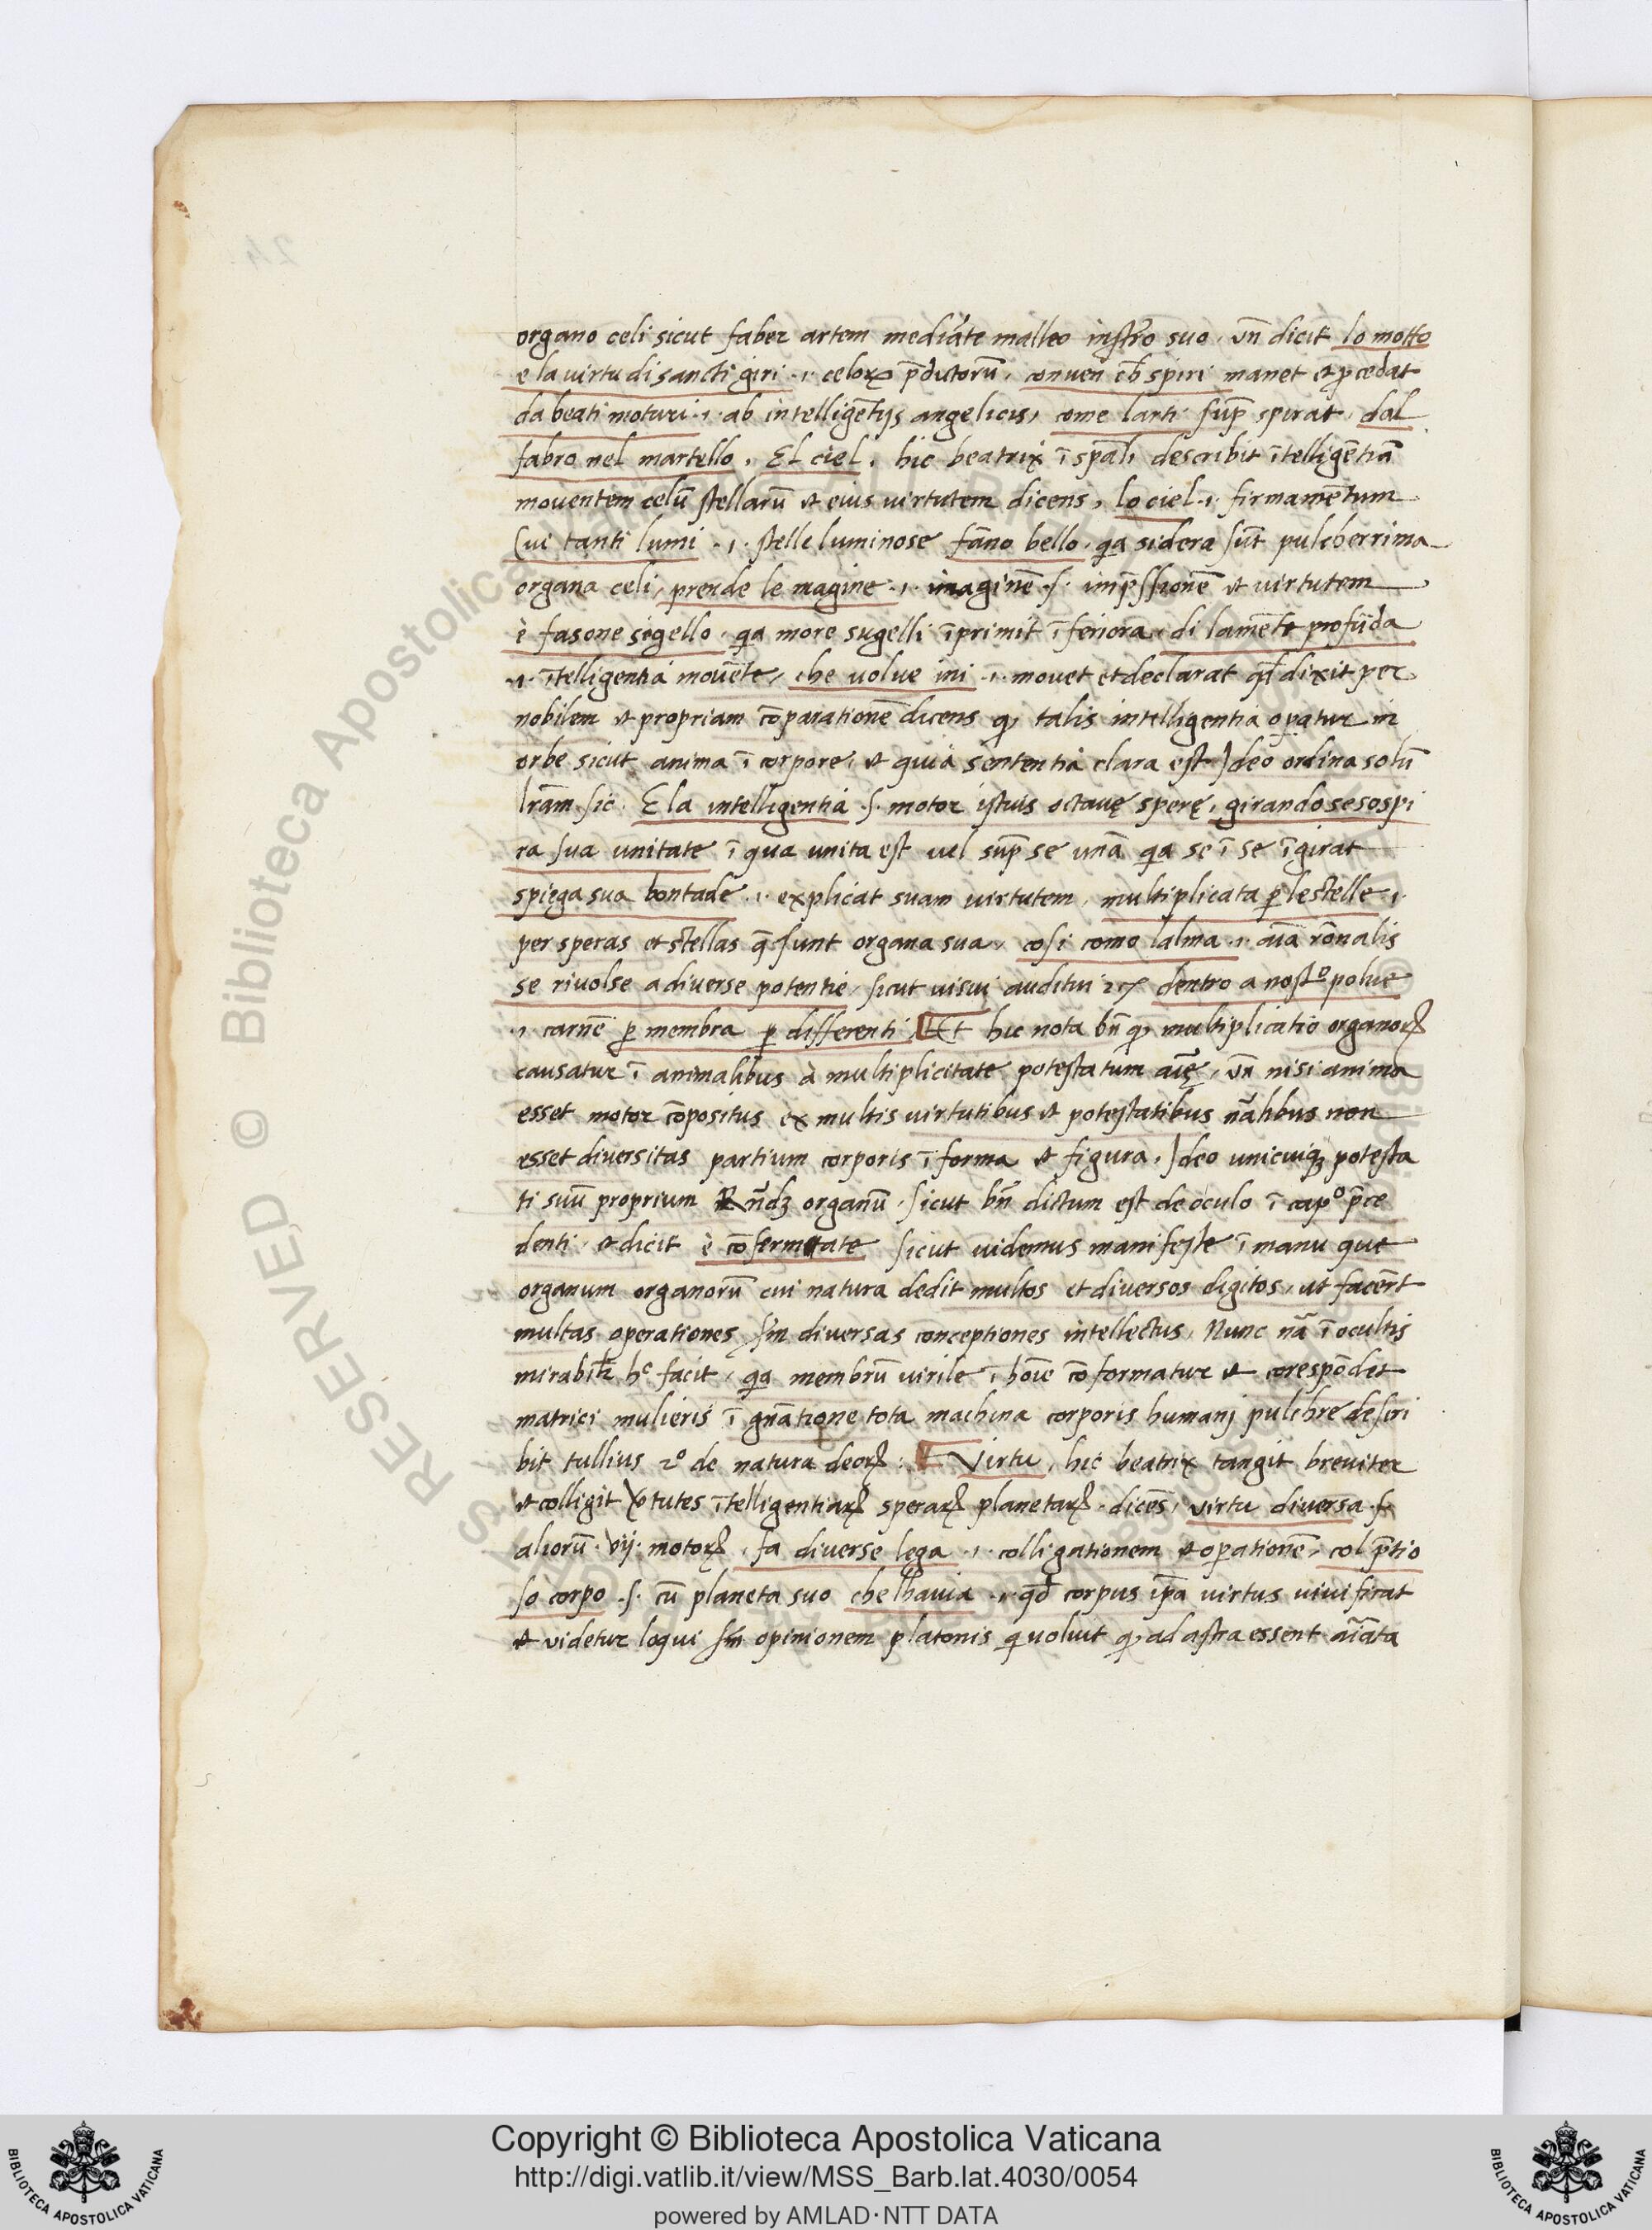 organo celi sicut faber artem mediāte malleo inst͂ro suo, vn̄ dicit lo motto
e la virtu di sancti giri .i. celoꝝ p̄dictorū, conuen ch̄ spiri manet et ꝓcedat
da beati moturi .i. ab intelligētijs angelicis, come larti sup̱ spirat, dal
fabro nel martello, El ciel, hic beatrix ī spāli describit ītelligētiā
mouentem celū stellarū et eius virtutem dicens, lo ciel .i. firmamētum
cui tanti lumi .i. stelle luminose fāno bello, q̄a sidera sūt pulcherrima
organa celi, prende le magine .i. imaginē .s. imp̄ssionē et virtutem
è fasone sigello, q̄a more sugelli īprimit īferiora, di lamēte profūda
.i. ītelligentia mouēte, che volue ini .i. mouet et declarat qd̄ dixit per
nobilem et propriam cōparationē dicens ꝙ talis intelligentia oꝑatur in
orbe sicut anima ī corpore, et quia sententia clara est Ideo ordina solū
lr̄am sic. E la intelligentia .s. motor istuis octauę sperę, girando se sospi
ra sua unitate ī qua unita est vel sup̱ se unā q̄a se ī se īgirat
spiega sua bontade .i. explicat suam virtutem, multiplicata ꝑ le stelle .i.
per speras et stellas q̄ sunt organa sua, cosi como lalma .i. aīa rōnalis
se riuolse a diverse potentie, sicut visui auditui &c dentro a nostº polue
.i. carnē ꝑ membra ꝑ differenti, Et hic nota bn̄ ꝙ multiplicatio organoꝝ
causatur ī animalibus à multiplicitate potestatum aīę, vn̄ nisi anima
esset motor cōpositus ex multis virtutibus et potestatibus nālibus non
esset diversitas partium corporis ī forma et figura, Ideo unicuiqꝫ potesta
ti suū proprium Rn̄dꝫ organū. sicut bn̄ dictum est de oculo ī capº p̄ce
denti, et dicit è cōfermate sicut videmus manifeste ī manu que
organum organorū cui natura dedit multos et diversos digitos, ut facēt
multas operationes, sm̄ diversas conceptiones intellectus, Nunc nā ī ocultis
mirabilr̄ hᶜ facit, q̄a membrū virile ī hoīe cōformatur et corespōdet
matrici mulieris ī gn̄atione tota machina corporis humanj pulchre descri
bit tullius 2º de natura deoꝝ: Virtu, hic beatrix tangit breviter
et colligit v̄tutes ītelligentiaꝝ speraꝝ planetaꝝ. dicēs, virtu diuersa .s.
aliorū .vij. motoꝝ, fa diverse lega .i. colligationem et oꝑationē, col p̄tio
so corpo .s. cū planeta suo che lhauia .i. qd̄ corpus ip̄a virtus vivificat
et videtur loqui sm̄ opinionem platonis qͥ voluit ꝙ ad astra essent aīata
Copyright © Biblioteca Apostolica Vaticana
http://digi.vatlib.it/view/MSS_Barb.lat.4030/0054
powered by AMLAD·NTT DATA